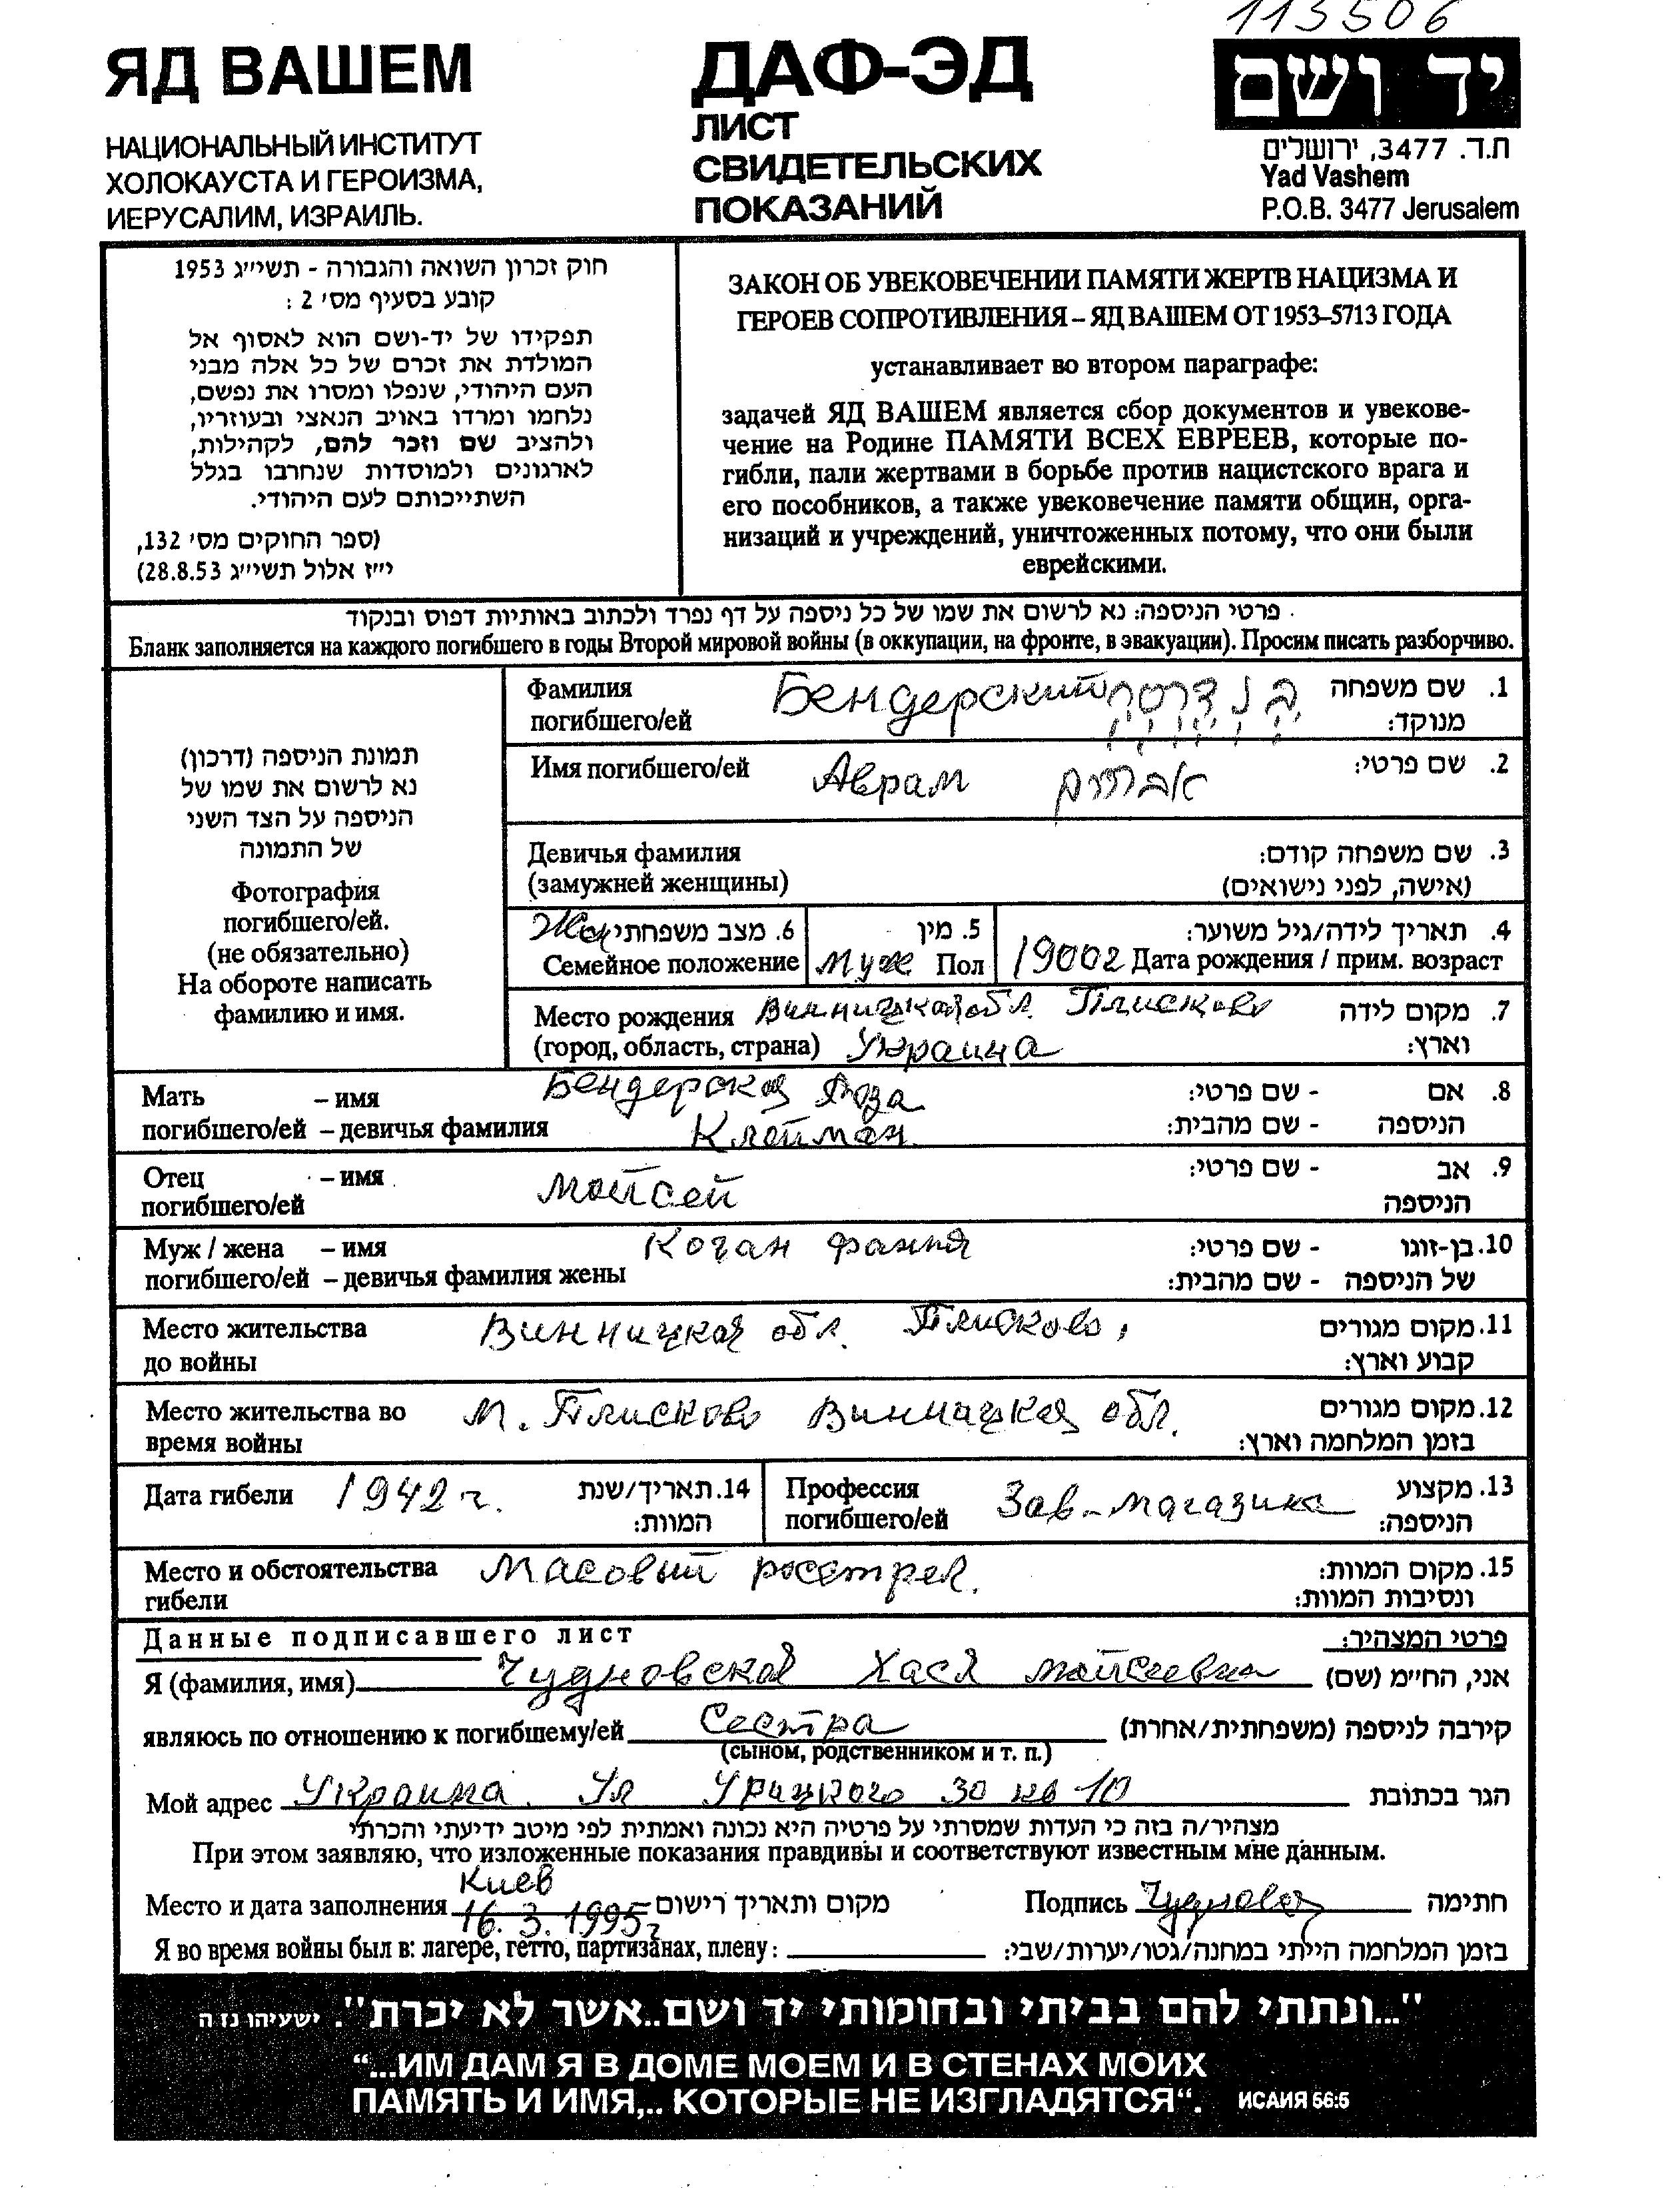 113506
ЯД ВАШЕМ
НАЦИОНАЛЬНЫЙ ИНСТИТУТ
ХОЛОКАУСТА И ГЕРОИЗМА,
ИЕРУСАЛИМ, ИЗРАИЛЬ.
ДАФ-ЭД
ЛИСТ
СВИДЕТЕЛЬСКИХ
ПОКАЗАНИЙ
יד ושם
ת.ד. 3477, ירושלים
Yad Vashem
P.O.B. 3477 Jerusalem
חוק זכרון השואה והגבורה - תשי״ג 1953
קובע בסעיף מס׳ 2 :
תפקידו של יד-ושם הוא לאסוף אל
המולדת את זכרם של כל אלה מבני
העם היהודי, שנפלו ומסרו את נפשם,
נלחמו ומרדו באויב הנאצי ובעוזריו,
ולהציב שם וזכר להם, לקהילות,
לארגונים ולמוסדות שנחרבו בגלל
השתייכותם לעם היהודי.
(ספר החוקים מס׳ 132,
י״ז אלול תשי״ג 28.8.53)
ЗАКОН ОБ УВЕКОВЕЧЕНИИ ПАМЯТИ ЖЕРТВ НАЦИЗМА И
ГЕРОЕВ СОПРОТИВЛЕНИЯ – ЯД ВАШЕМ ОТ 1953–5713 ГОДА
устанавливает во втором параграфе:
задачей ЯД ВАШЕМ является сбор документов и увекове-
чение на Родине ПАМЯТИ ВСЕХ ЕВРЕЕВ, которые по-
гибли, пали жертвами в борьбе против нацистского врага и
его пособников, а также увековечение памяти общин, орга-
низаций и учреждений, уничтоженных потому, что они были
еврейскими.
פרטי הניספה: נא לרשום את שמו של כל ניספה על דף נפרד ולכתוב באותיות דפוס ובנקוד
Бланк заполняется на каждого погибшего в годы Второй мировой войны (в оккупации, на фронте, в эвакуации). Просим писать разборчиво.
תמונת הניספה (דרכון)
נא לרשום את שמו של
הניספה על הצד השני
של התמונה
Фотография
погибшего/ей.
(не обязательно)
На обороте написать
фамилию и имя.
Фамилия Бендерский 1. שם משפחה
погибшего/ей מנוקד:
Имя погибшего/ей Аврам אברהם 2. שם פרטי:
Девичья фамилия 3. שם משפחה קודם:
(замужней женщины) (אישה, לפני נישואים)
6. מצב משפחתי 5. מין 4. תאריך לידה/גיל משוער:
Семейное положение Муж Пол 1900г Дата рождения / прим. возраст
Место рождения Винницкая обл. Плисково 7. מקום לידה
(город, область, страна) Украина וארץ:
Мать – имя Бендерская Роза 8. אם - שם פרטי:
погибшего/ей – девичья фамилия Клейман. הניספה - שם מהבית:
Отец – имя Мойсей 9. אב - שם פרטי:
погибшего/ей הניספה
Муж / жена – имя Коган Фания 10. בן-זוגו - שם פרטי:
погибшего/ей – девичья фамилия жены של הניספה - שם מהבית:
Место жительства Винницкая обл. Плисково, 11. מקום מגורים
до войны קבוע וארץ:
Место жительства во М. Плисково Винницкая обл. 12. מקום מגורים
время войны בזמן המלחמה וארץ:
Дата гибели 1942 г. 14. תאריך/שנת המוות:
Профессия Зав-магазина 13. מקצוע
погибшего/ей הניספה:
Место и обстоятельства Масовый росстрел. 15. מקום המוות:
гибели ונסיבות המוות:
Данные подписавшего лист פרטי המצהיר:
Я (фамилия, имя) Чудновская Хася Мойсеевна אני, הח״מ (שם)
являюсь по отношению к погибшему/ей Сестра קירבה לניספה (משפחתית/אחרת)
(сыном, родственником и т. п.)
Мой адрес Украина. Ул Урицкого 30 кв 10 הגר בכתובת
מצהיר/ה בזה כי העדות שמסרתי על פרטיה היא נכונה ואמתית לפי מיטב ידיעתי והכרתי
При этом заявляю, что изложенные показания правдивы и соответствуют известным мне данным.
Киев
Место и дата заполнения 16. 3. 1995г מקום ותאריך רישום Подпись חתימה
Я во время войны был в: лагере, гетто, партизанах, плену: בזמן המלחמה הייתי במחנה/גטו/יערות/שבי:
"...ונתתי להם בביתי ובחומותי יד ושם..אשר לא יכרת". ישעיהו נז ה
“...ИМ ДАМ Я В ДОМЕ МОЕМ И В СТЕНАХ МОИХ
ПАМЯТЬ И ИМЯ,.. КОТОРЫЕ НЕ ИЗГЛАДЯТСЯ“. ИСАИЯ 56:5